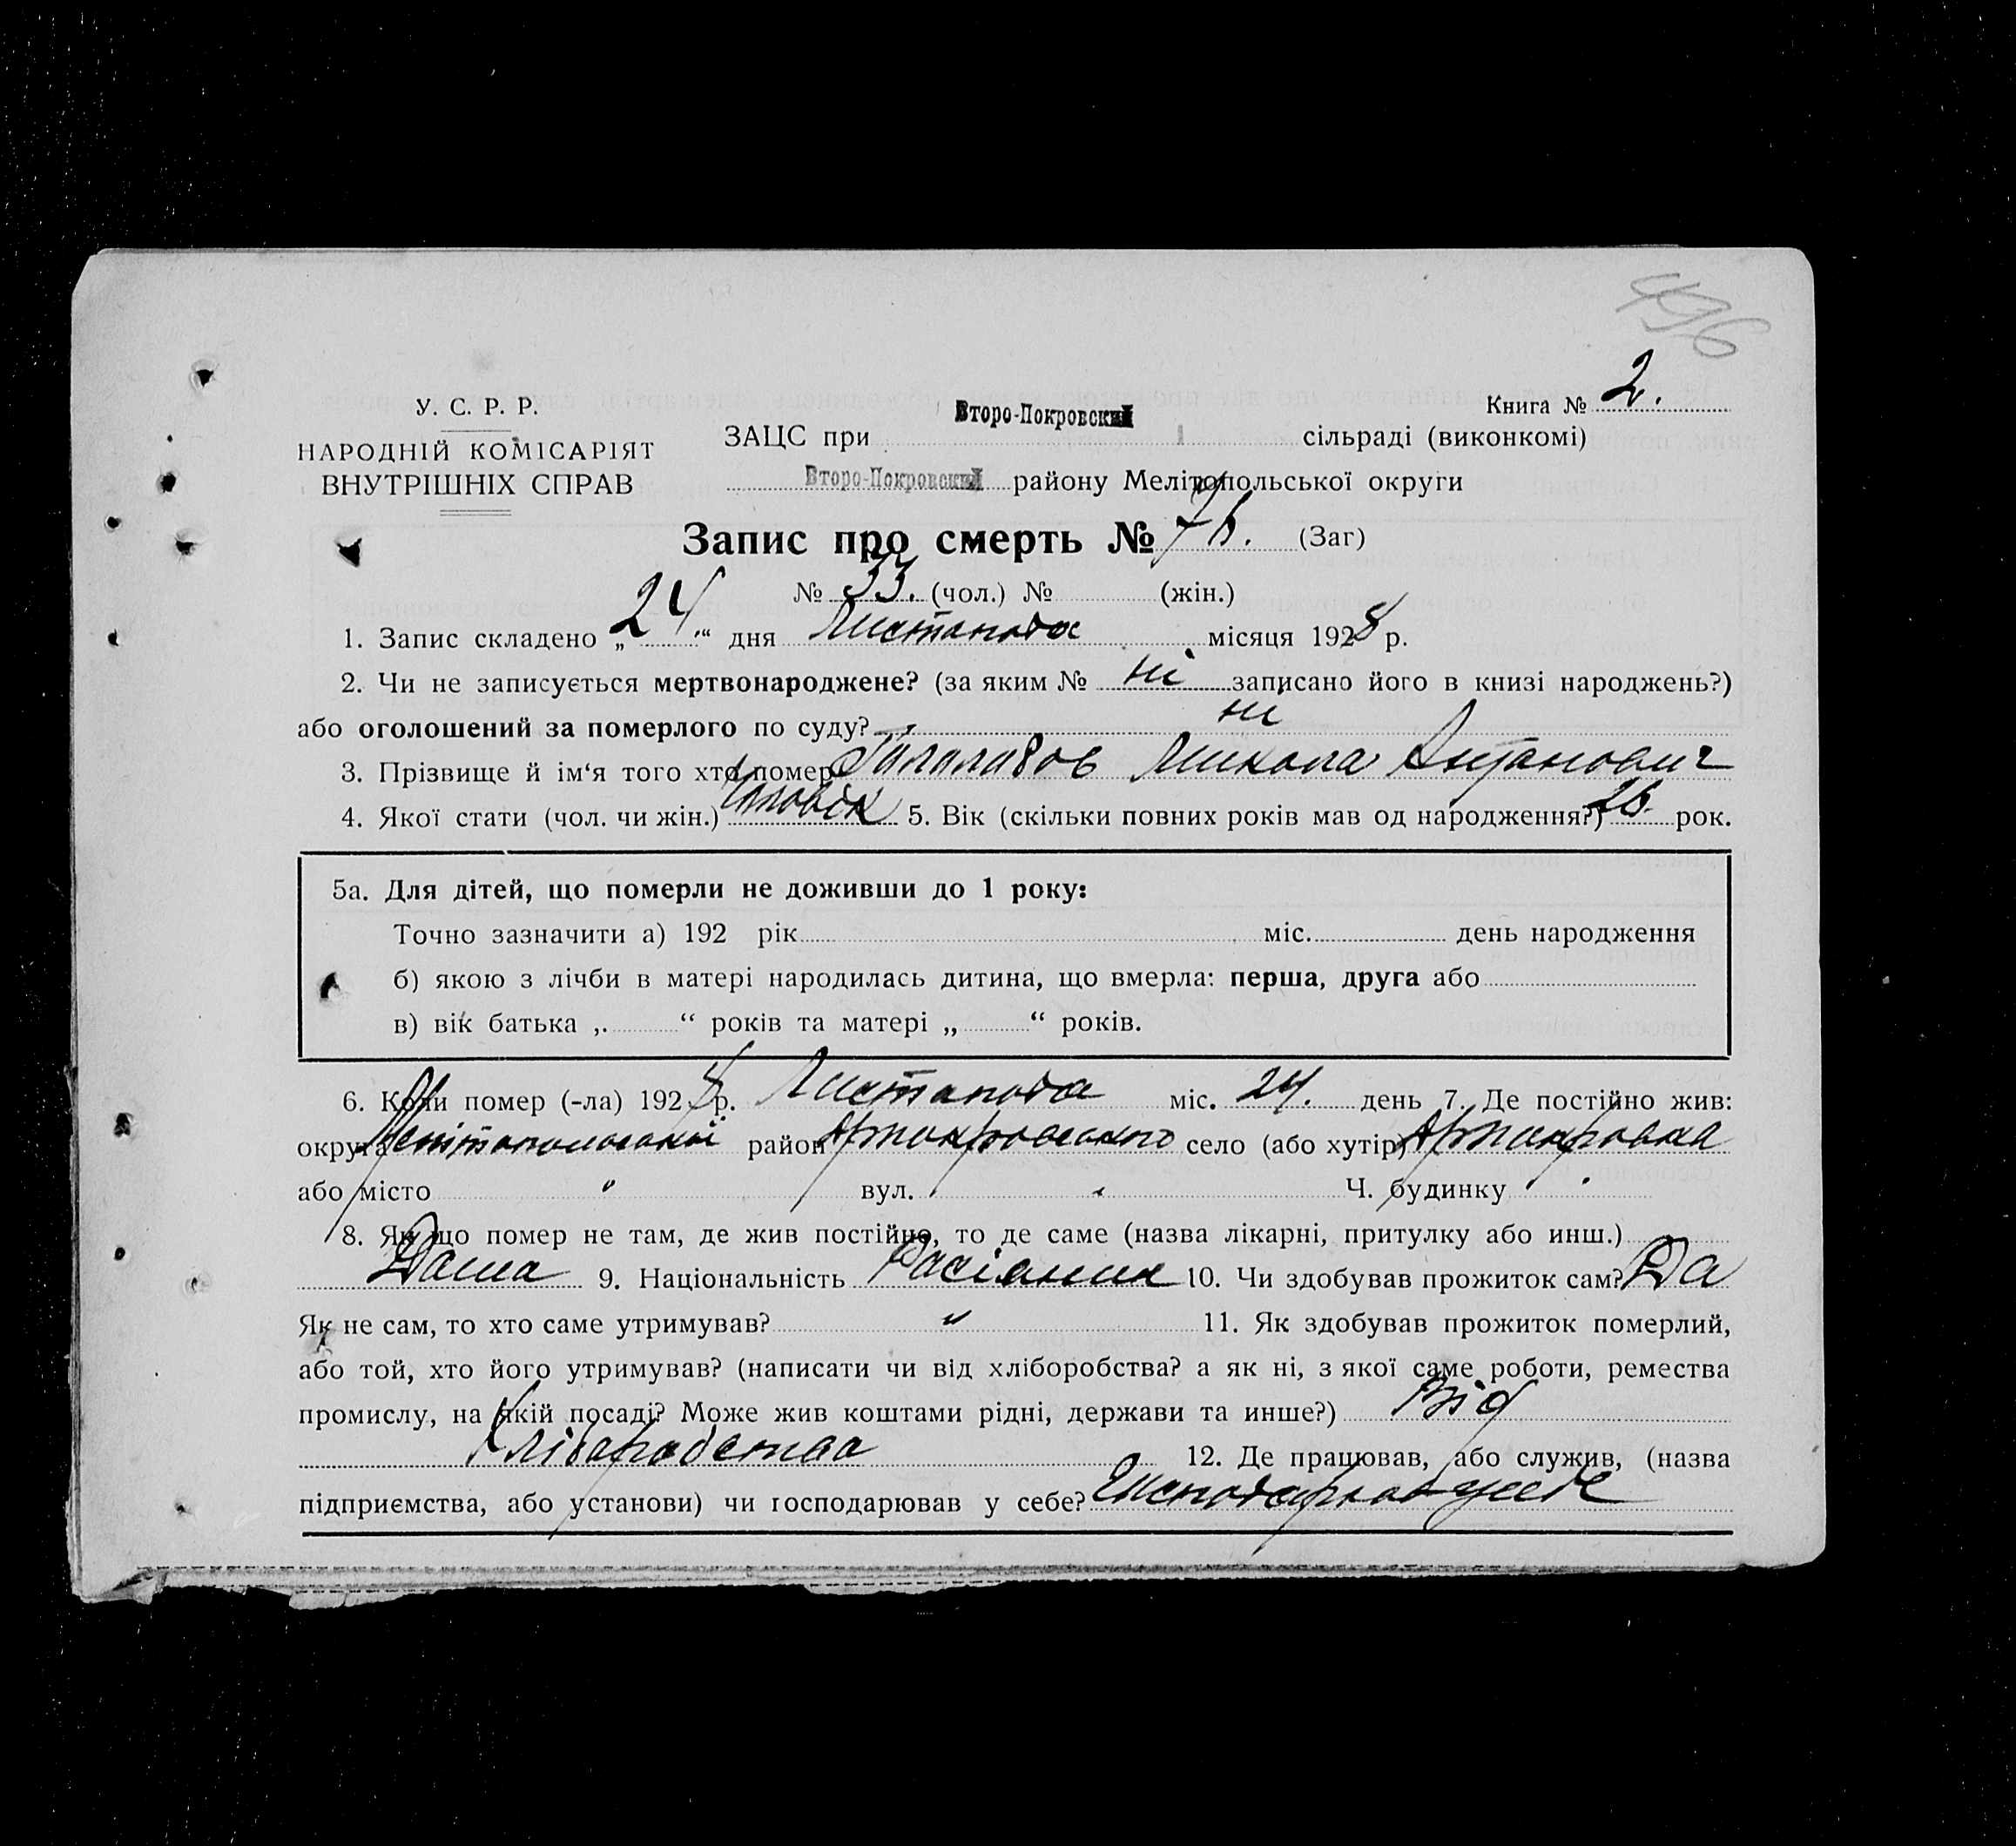 496
Книга № 2.
У. С. Р. Р.
НАРОДНІЙ КОМІСАРІЯТ
ВНУТРІШНІХ СПРАВ
ЗАЦС при Второ-Покровский сільраді (виконкомі)
Второ-Покровский району Мелітопольської округи
Запис про смерть № (Заг)
№ 33. (чол.) № (жін.)
1. Запис складено „24“ дня Листопада місяця 1928 р.
2. Чи не записується мертвонароджене? (за яким № ні записано його в книзі народжень?)
або оголошений за померлого по суду? ні
3. Прізвище й ім‘я того хто помер Микола
4. Якої стати (чол. чи жін.) Чоловік 5. Вік (скільки повних років мав од народження?) рок.
5а. Для дітей, що померли не доживши до 1 року:
Точно зазначити а) 192 рік міс. день народження
б) якою з лічби в матері народилась дитина, що вмерла: перша, друга або
в) вік батька „ “ років та матері „ “ років.
6. Коли помер (-ла) 1928 р. Листопада міс. 24. день 7. Де постійно жив:
округа район село (або хутір)
або місто " вул. " Ч. будинку
8. Якщо помер не там, де жив постійно, то де саме (назва лікарні, притулку або инш.)
Дома 9. Національність 10. Чи здобував прожиток сам? Да
Як не сам, то хто саме утримував? " 11. Як здобував прожиток померлий,
або той, хто його утримував? (написати чи від хліборобства? а як ні, з якої саме роботи, ремества
промислу, на якій посаді? Може жив коштами рідні, держави та инше?) Від
Хліборобства 12. Де працював, або служив, (назва
підприємства, або установи) чи господарював у себе?